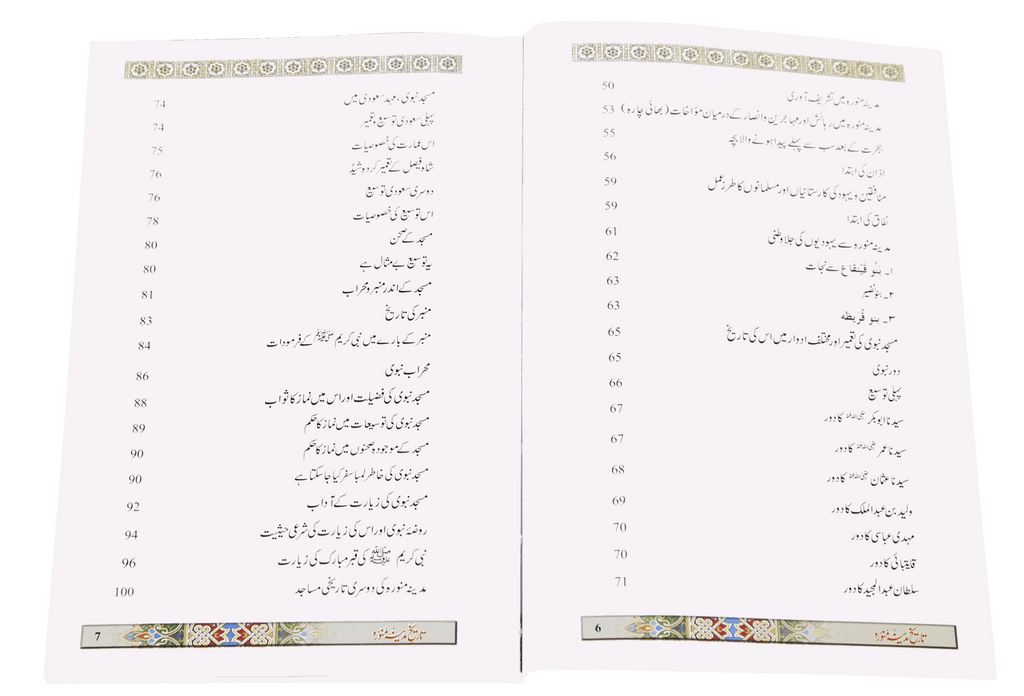 مدینہ منورہ میں تشریف آوری 50
مدینہ منورہ میں رہائش اور مہاجرین وانصار کے درمیان مؤاخات (بھائی چارہ) 53
ہجرت کے بعد سب سے پہلے پیدا ہونے والا بچہ 55
اذان کی ابتدا 56
منافقین ویہود کی کارستانیاں اور مسلمانوں کا طرز عمل 59
نفاق کی ابتدا 59
مدینہ منورہ سے یہودیوں کی جلاوطنی 61
۱۔ بَنُو قَیْنُقَاع سے نجات 62
۲۔ بنو نضیر 63
۳۔ بنو قُریظہ 63
مسجد نبوی کی تعمیر اور مختلف ادوار میں اس کی تاریخ 65
دور نبوی 65
پہلی توسیع 66
سیدنا ابوبکر رضی اللہ عنہ کا دور 67
سیدنا عمر رضی اللہ عنہ کا دور 67
سیدنا عثمان رضی اللہ عنہ کا دور 68
ولید بن عبدالملک کا دور 69
مہدی عباسی کا دور 70
قایتبائی کا دور 70
سلطان عبدالمجید کا دور 71
تاریخ مدینہ منورہ 6
مسجد نبوی، عہد سعودی میں 74
پہلی سعودی توسیع وتعمیر 74
اس عمارت کی خصوصیات 75
شاہ فیصل کے تعمیر کردہ شیڈ 76
دوسری سعودی توسیع 76
اس توسیع کی خصوصیات 78
مسجد کے صحن 80
یہ توسیع بے مثال ہے 80
مسجد کے اندر منبر ومحراب 81
منبر کی تاریخ 83
منبر کے بارے میں نبی کریم ﷺ کے فرمودات 84
محراب نبوی 86
مسجد نبوی کی فضیلت اور اس میں نماز کا ثواب 88
مسجد نبوی کی توسیعات میں نماز کا حکم 89
مسجد کے موجودہ صحنوں میں نماز کا حکم 90
مسجد نبوی کی خاطر لمبا سفر کیا جاسکتا ہے 90
مسجد نبوی کی زیارت کے آداب 92
روضۂ نبوی اور اس کی زیارت کی شرعی حیثیت 94
نبی کریم ﷺ کی قبر مبارک کی زیارت 96
مدینہ منورہ کی دوسری تاریخی مساجد 100
تاریخ مدینہ منورہ 7